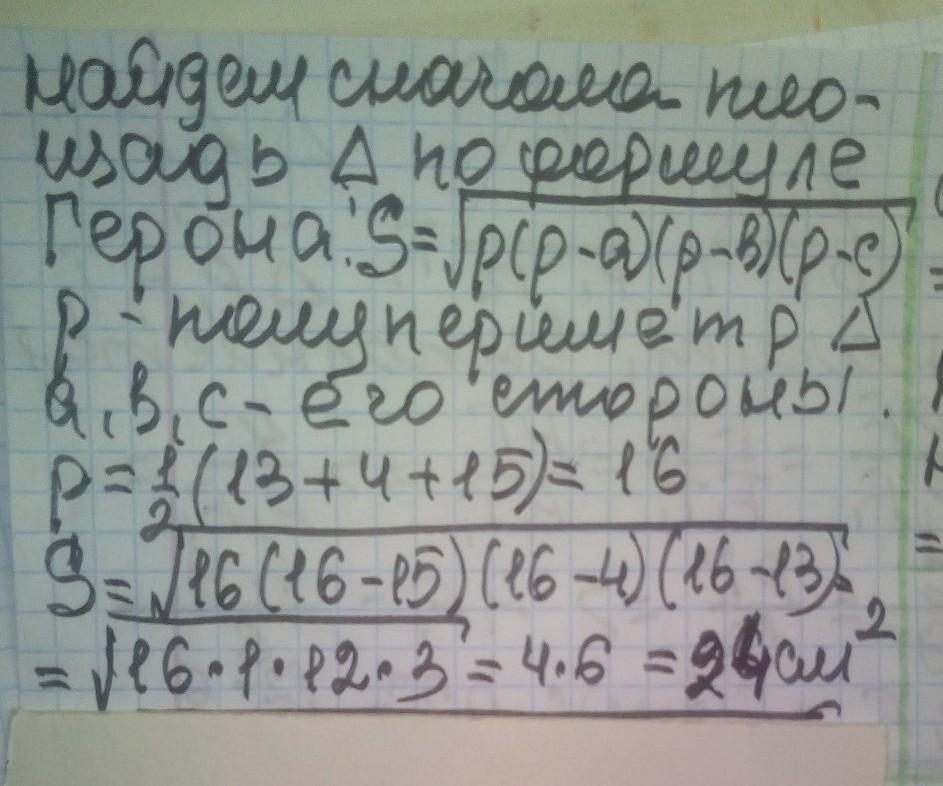 найдем сначала пло-
щадь Δ по формуле
Герона: S=√p(p-a)(p-в)(p-c)
p - полупериметр Δ
a, в, c - его стороны.
p = 1/2 (13+4+15) = 16
S = √16(16-15)(16-4)(16-13) =
= √16·1·12·3 = 4·6 = 24 см²